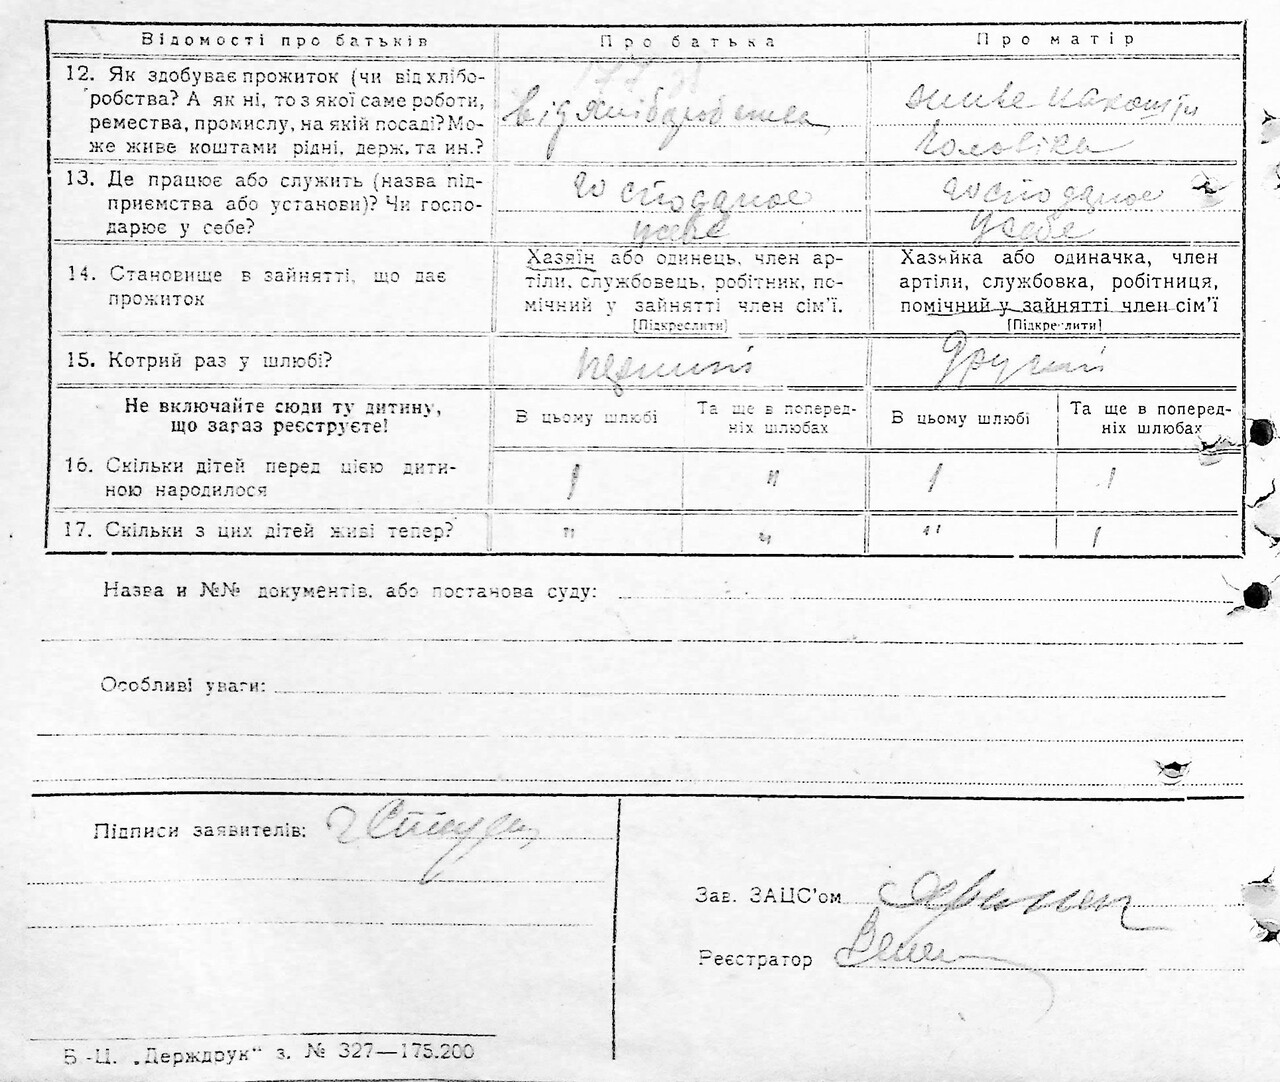 Відомості про батьків
Про батька
Про матір
12. Як здобуває прожиток (чи від хлібо-
робства? А як ні, то з якої саме роботи,
ремества, промислу, на якій посаді? Мо-
же живе коштами рідні, держ. та ин.?
від хліборобства
живе на кошти
Чоловіка
13. Де працює або служить (назва під-
приємства або установи)? Чи госпо-
дарює у себе?
господарює
у себе
господарює
у себе
14. Становище в зайнятті, що дає
прожиток
Хазяїн або одинець, член ар-
тіли, службовець, робітник, по-
мічний у зайнятті член сім'ї.
[Підкреслити]
Хазяйка або одиначка, член
артіли, службовка, робітниця,
помічний у зайнятті член сім'ї
[Підкреслити]
15. Котрий раз у шлюбі?
перший
Другий
Не включайте сюди ту дитину,
що зараз реєструєте!
В цьому шлюбі
Та ще в поперед-
ніх шлюбах
В цьому шлюбі
Та ще в поперед-
ніх шлюбах
16. Скільки дітей перед цією дити-
ною народилося
1 " 1 1
17. Скільки з цих дітей живі тепер?
" " " 1
Назва и №№ документів, або постанова суду:
Особливі уваги:
Підписи заявителів:
Зав. ЗАЦС'ом
Реєстратор
Б-Ц. „Держдрук" з. № 327—175.200